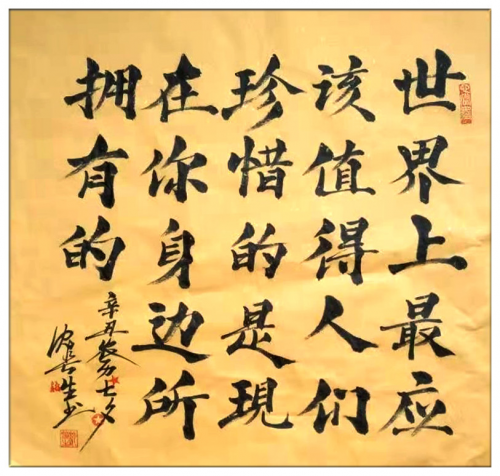 世界上最应
该值得人们
珍惜的是现
在你身边所
拥有的
辛丑农历七夕
生书